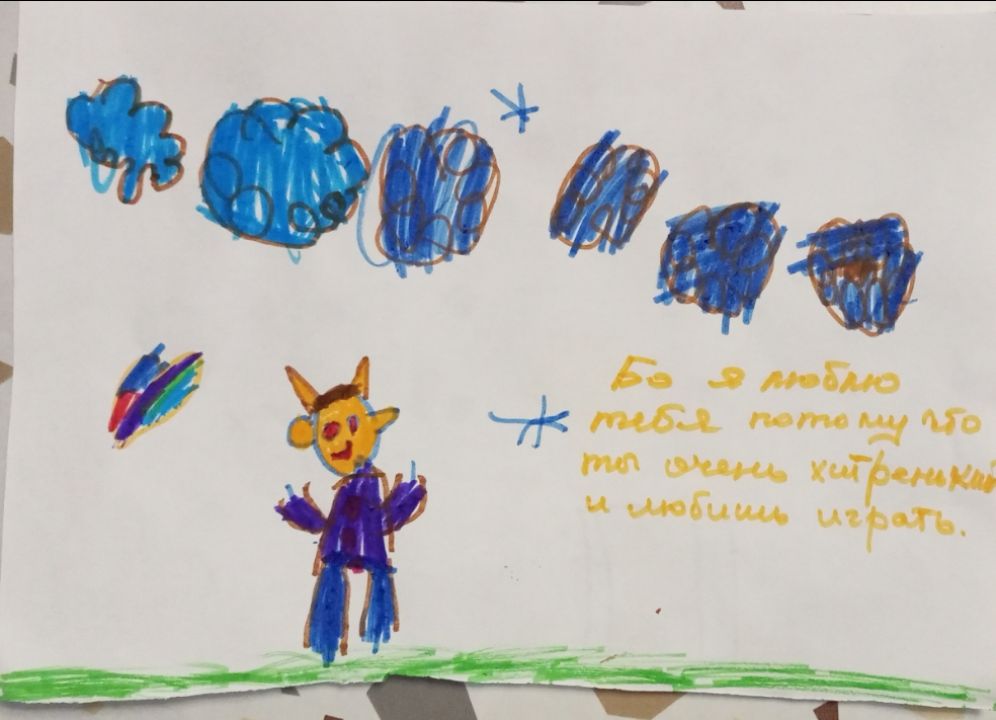 Бо я люблю
тебя потому что
ты очень хитренький
и любишь играть.